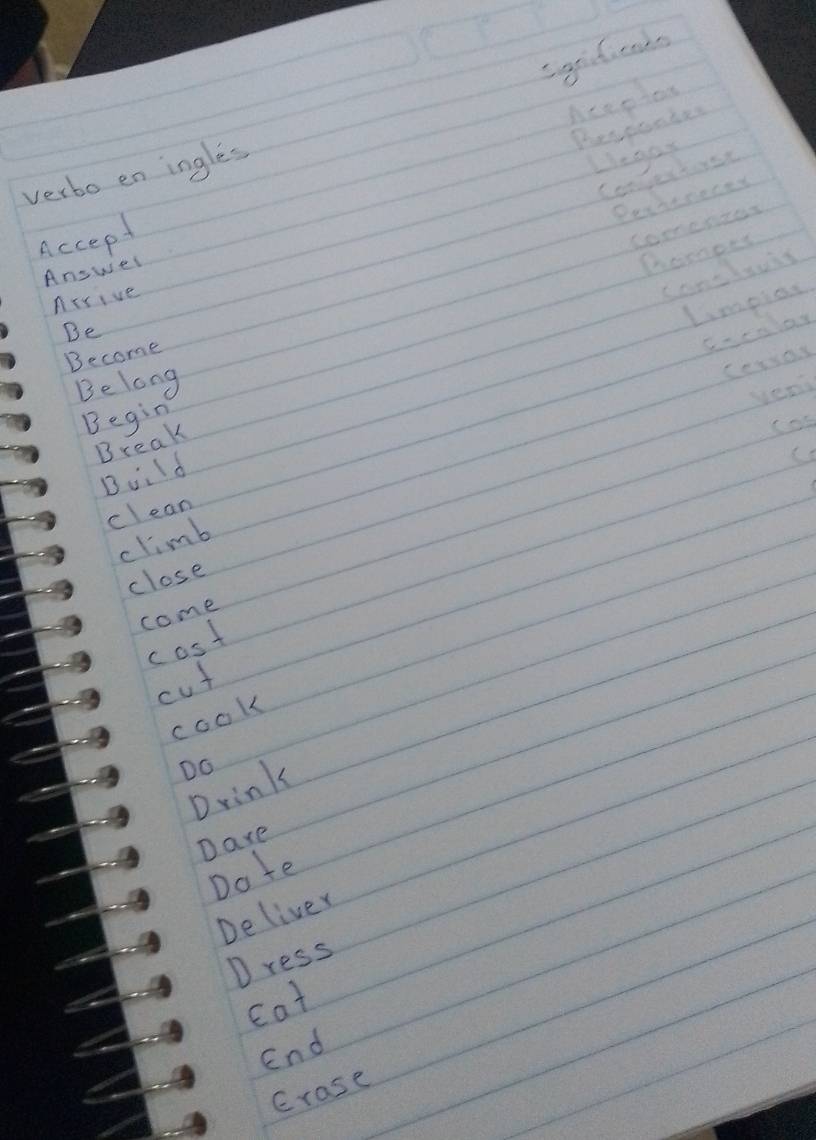 verbo en inglés
Accept
Answer
Arrive
Be
Become
Belong
Begin
Break
Build
clean
climb
close
come
cost
cut
cook
Do
Drink
Dare
Date
Deliver
Dress
Eat
End
Erase
significado
Aceptar
Responder
Llegar
convertirse
Pertenecer
comenzar
Romper
construir
Limpiar
escalar
cerrar
veni
cos